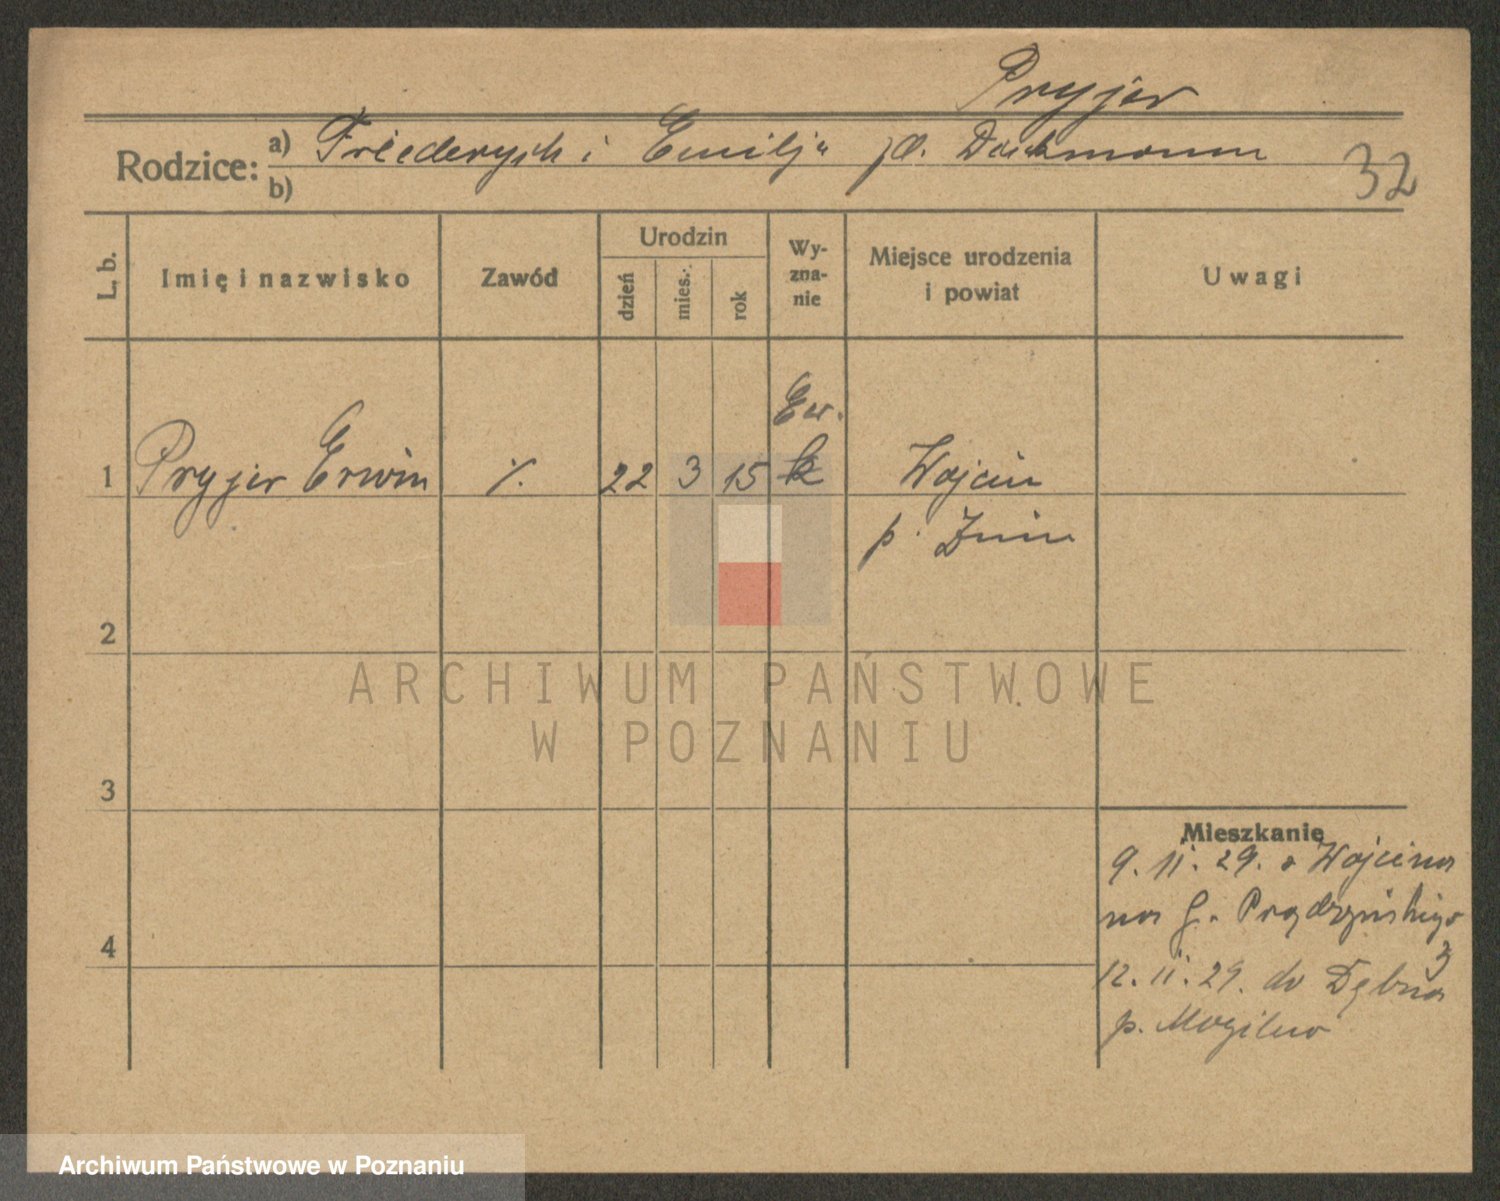 Pryjer
Rodzice: a) Friederych i Emilja zd. Dachmann
b)
32
L. b.
Imię i nazwisko
Zawód
Urodzin
dzień
mies.
rok
Wy-
zna-
nie
Miejsce urodzenia
i powiat
Uwagi
Ew.
1 Pryjer Erwin ·/. 22 3 15 k Wojcin
p. Żnin
2
3
4
ARCHIWUM PAŃSTWOWE
W POZNANIU
Mieszkanie
9. II. 29. z Wojcina
na G. Prądzyńskiego
3
12. II. 29. do Dębna
p. Mogilno
Archiwum Państwowe w Poznaniu